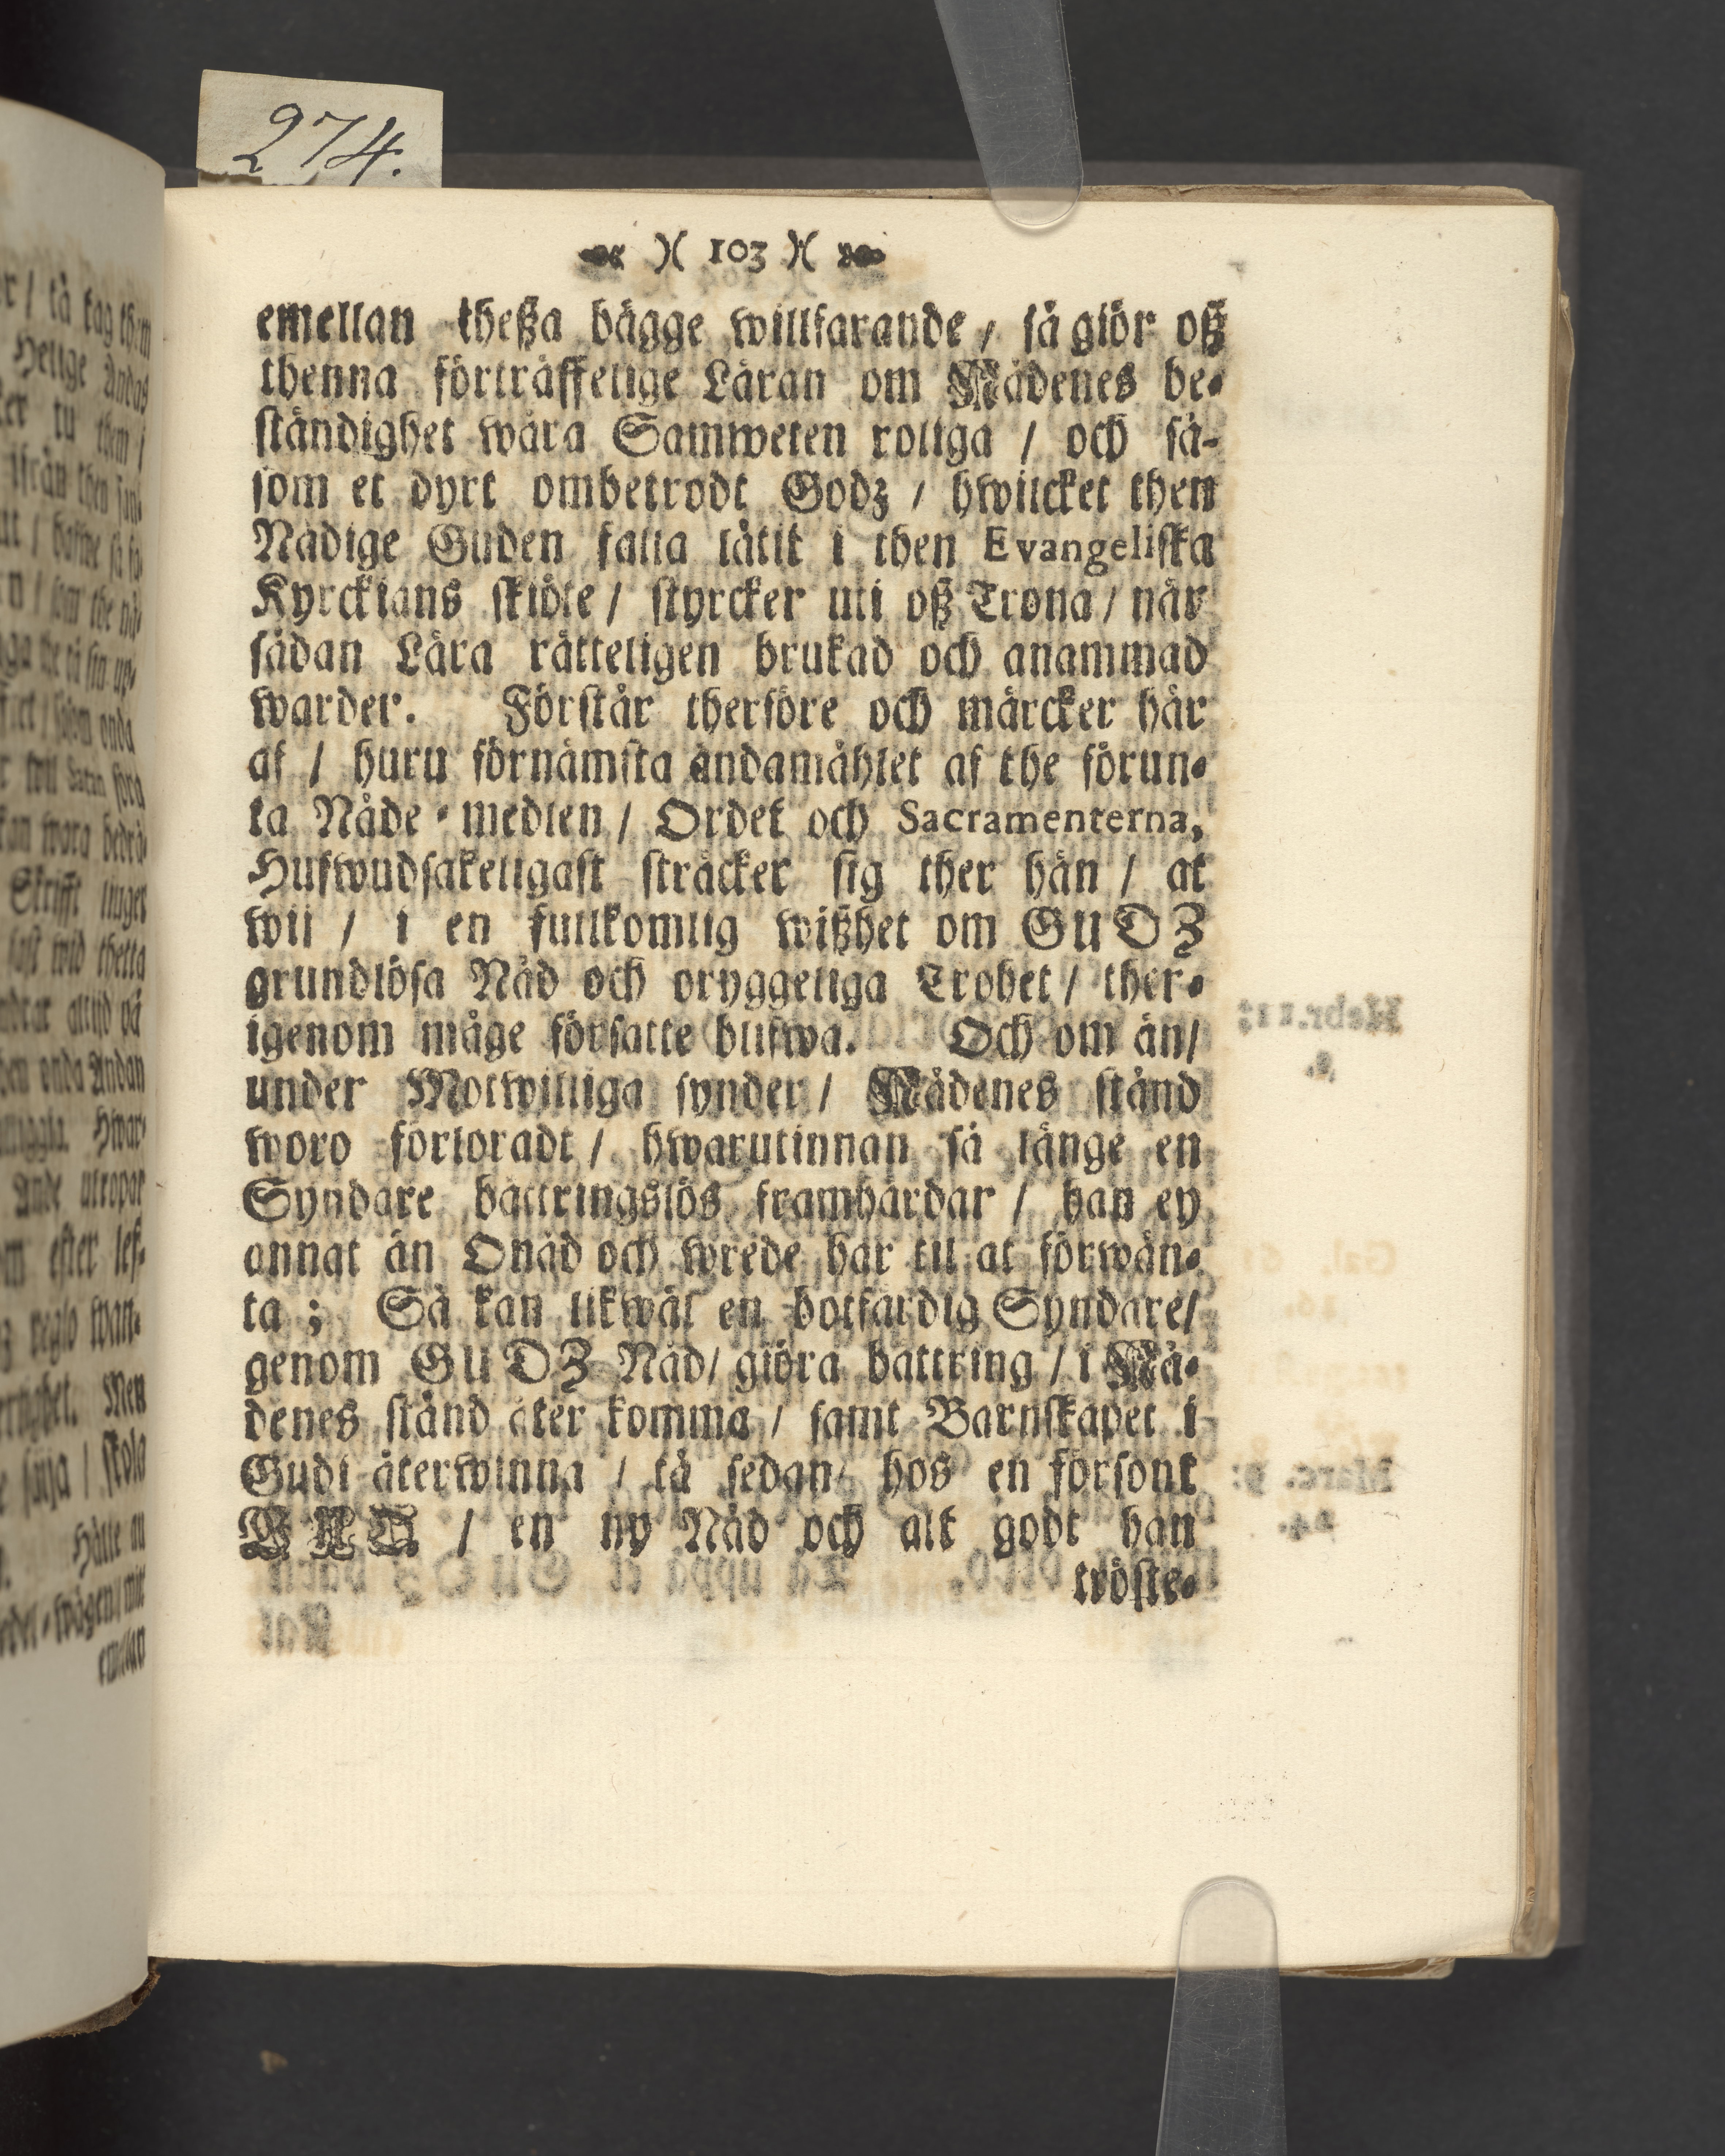 274.
103
emellan theßa bägge willfarande / så giör oß
thenna förträffelige Läran om Nådenes be-
ständighet wåra Samweten roliga / och så-
som et dyrt ombetrodt Godz / hwilcket then
Nådige Guden falla låtit i then Evangeliska
Kyrckians skiöte / styrcker uti oß Trona / när
sådan Lära rätteligen brukad och anammad
warder. Förstår therföre och märcker här
af / huru förnämsta ändamåhlet af the förun-
ta Nåde-medlen / Ordet och Sacramenterna,
Hufwudsakeligast sträcker sig ther hän / at
wii / i en fullkomlig wißhet om GUDZ
grundlösa Nåd och oryggeliga Trohet / ther-
igenom måge försatte blifwa. Och om än /
under Motwilliga synder / Nådenes stånd
woro förloradt / hwarutinnan så länge en
Syndare bättringslös framhärdar / han ey
annat än Onåd och wrede har til at förwän-
ta ; Så kan likwäl en botfärdig Syndare /
genom GUDZ Nåd / giöra bättring / i Nå-
denes stånd åter komma / samt Barnskapet i
Gudi återwinna / tå sedan / hos en försont
GUD / en ny Nåd och alt godt han
tröste-